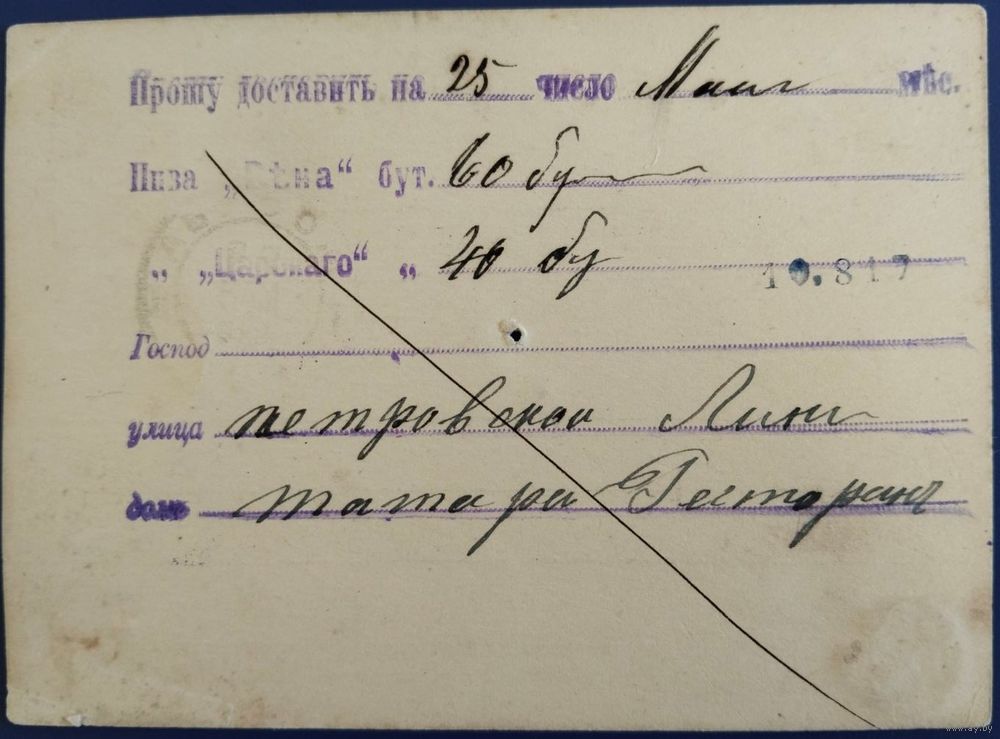 Прошу доставить на 25 число Маиг мѣс.
Пива „Вѣна“ бут. 60 бут
„ „Царскаго“ „ 40 бу
10.817
Господ
улица петровской Лини
домъ татара Ресторанъ
www.ay.by